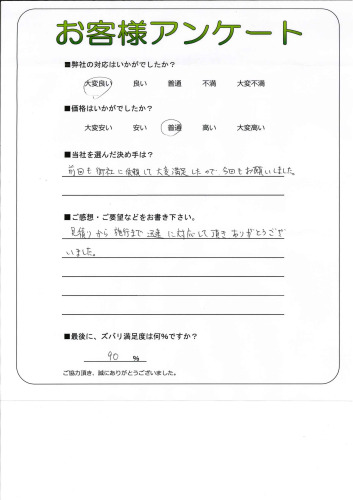 お客様アンケート
■弊社の対応はいかがでしたか？
大変良い 良い 普通 不満 大変不満
■価格はいかがでしたか？
大変安い 安い 普通 高い 大変高い
■当社を選んだ決め手は？
前回も御社に依頼して大変満足したので、今回もお願いしました。
■ご感想・ご要望などをお書き下さい。
見積りから施行まで迅速に対応して頂きありがとうござ
いました。
■最後に、ズバリ満足度は何%ですか？
90 %
ご協力頂き、誠にありがとうございました。